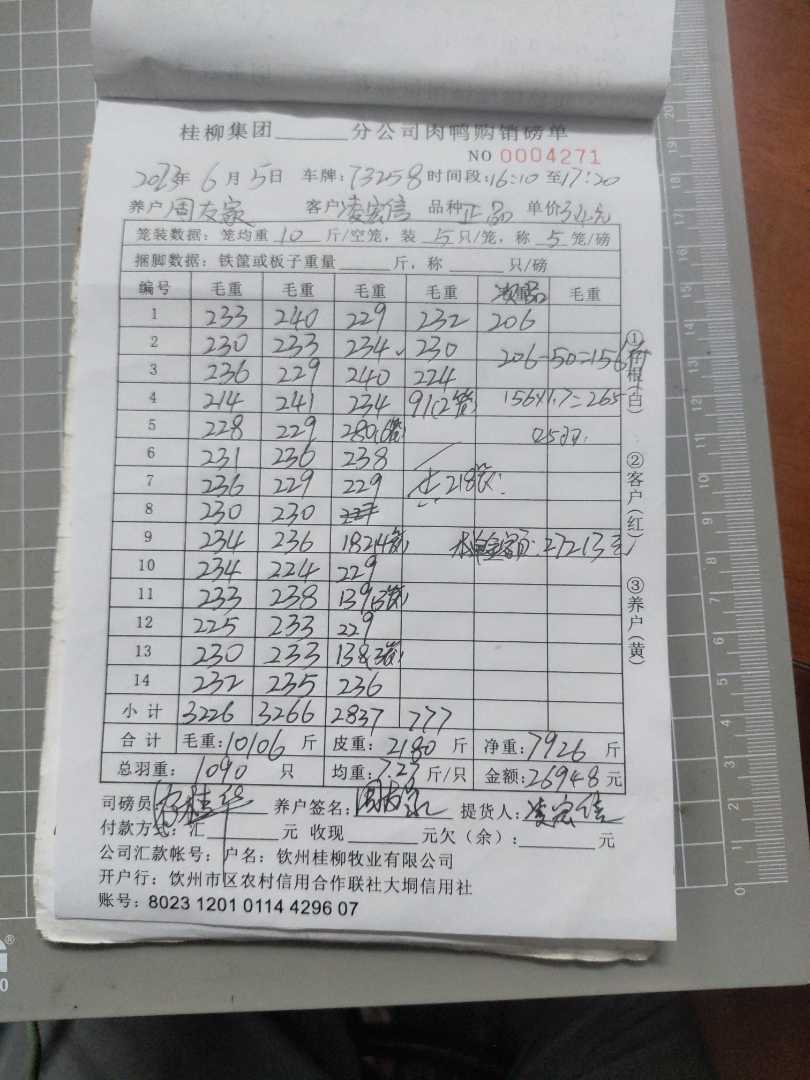 桂柳集团______分公司肉鸭购销磅单
NO 0004271
2023年6月5日 车牌:73258 时间段:16:10至17:20
养户 周友家 客户 凌宏信 品种 正品 单价3.4元
笼装数据: 笼均重 10 斤/空笼, 装 5 只/笼, 称 5 笼/磅
捆脚数据: 铁筐或板子重量______斤, 称______只/磅
编号 毛重 毛重 毛重 毛重 毛重
1 233 240 229 232 206
2 230 233 234 230 206-50=156斤
3 236 229 240 224
4 214 241 234 91(2笼) 156×1.7=265
5 228 229 280(6笼)
6 231 236 238
7 236 229 229 218笼
8 230 230
9 234 236 182(4笼) 27213元
10 234 224 229
11 233 238 139(3笼)
12 225 233 229
13 230 233 138(3笼)
14 232 235 236
小计 3226 3266 2837 777
合计 毛重:10106 斤 皮重:2180 斤 净重:7926 斤
总羽重: 1090 只 均重:7.27斤/只 金额:26948元
司磅员: 养户签名:周友家 提货人:凌宏信
付款方式: 汇______元 收现______元欠(余):______元
公司汇款帐号: 户名: 钦州桂柳牧业有限公司
开户行: 钦州市区农村信用合作联社大垌信用社
账号: 8023 1201 0114 4296 07
①存根(白)
②客户(红)
③养户(黄)